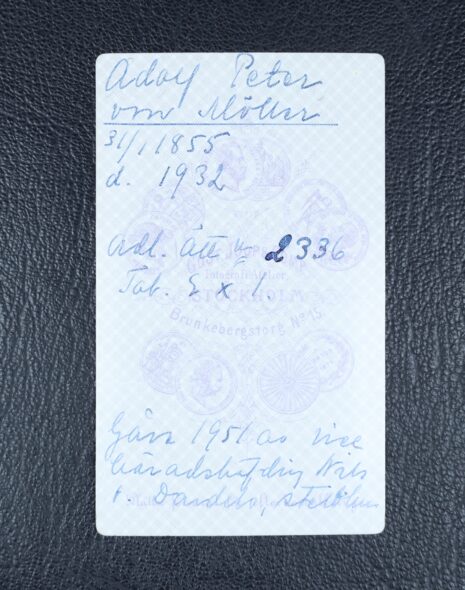 Adolf Peter
von Möller
31/1 1855
d. 1932
Adl. Ätt n 2336
Tab. 5 x 1
fotografiatelier
STOCKHOLM
Brunkebergstorg No 15.
Gåva 1951 av vice
häradshövding Nils
v. Dardel, Stockholm